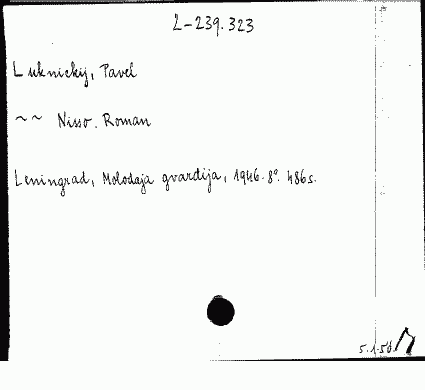 2-239.323
Luknickij, Pavel
~~ Nisso. Roman
Leningrad, Molodaja gvardija, 1946. 8°. 486s.
5.1.56